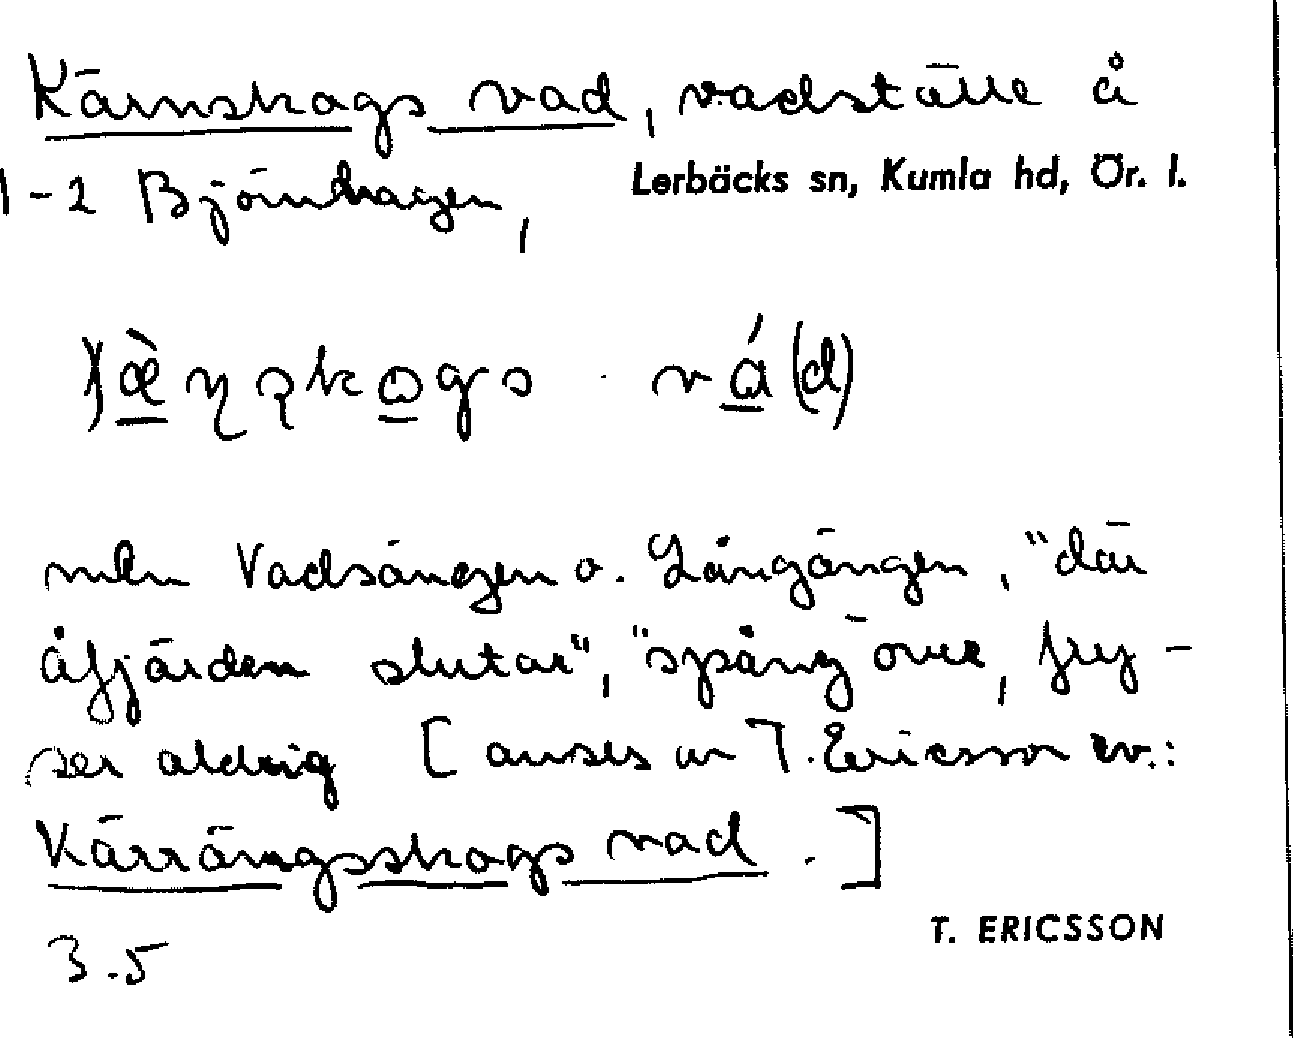 Kärnskogs vad, vadställe å
1-2 Björnhagen,
Lerbäcks sn, Kumla hd, Ör. l.
vá(d)
mln Vadsängen o. Långängen, "där
åfjärden slutar", "spång över, fry-
ser aldrig [anses av T. Ericsson ev.:
Kärrängsskogs vad.]
3.5
T. ERICSSON